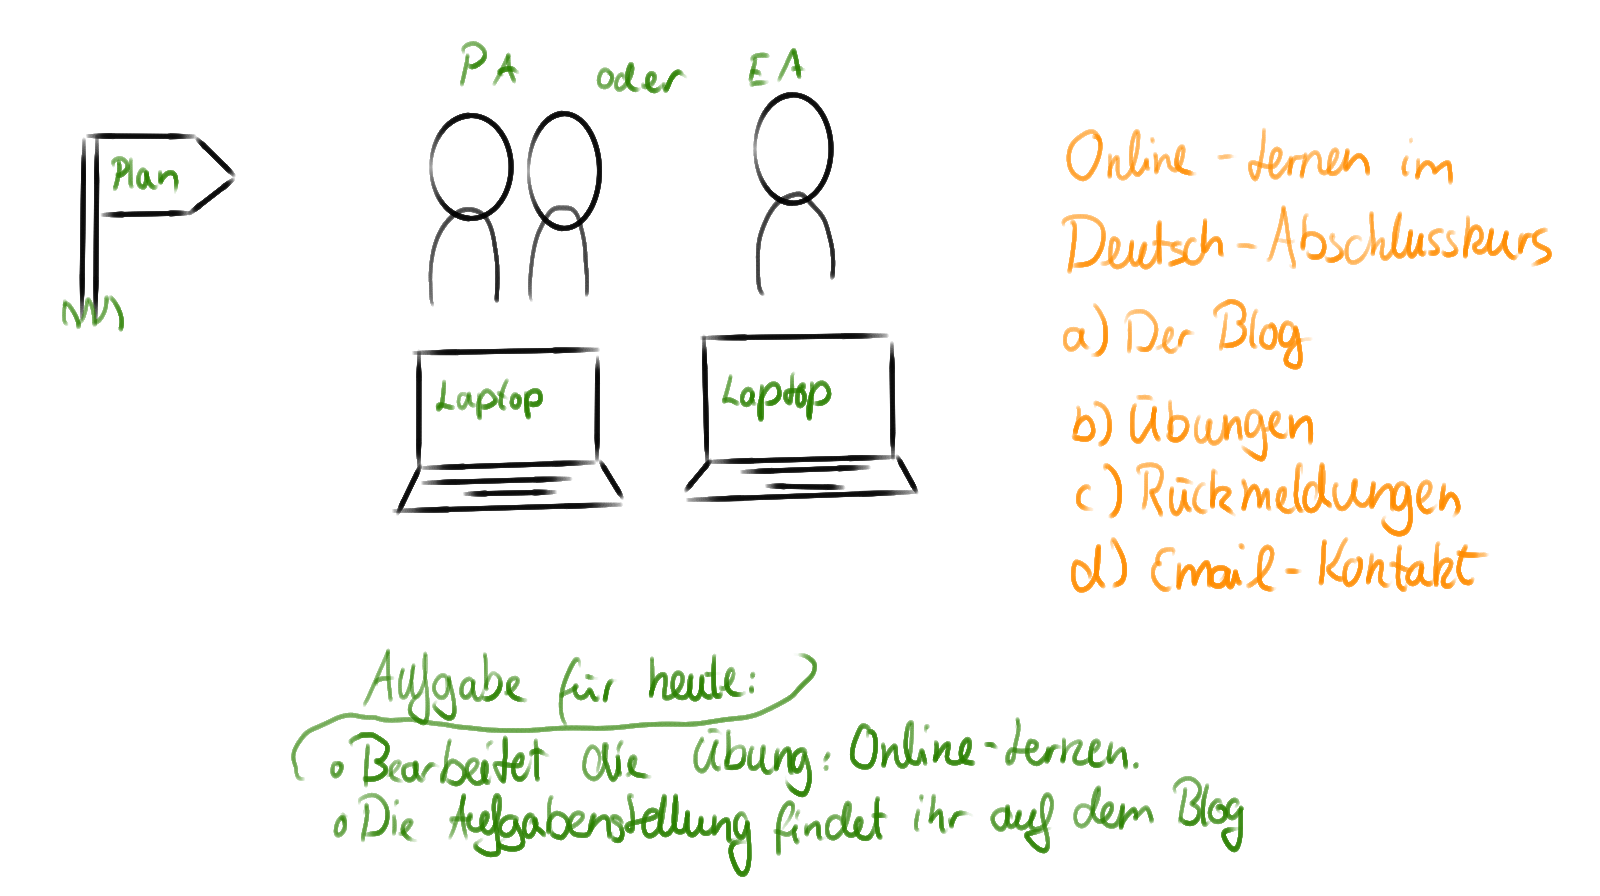 PA oder EA
Plan
Laptop
Laptop
Online-Lernen im
Deutsch-Abschlusskurs
a) Der Blog
b) Übungen
c) Rückmeldungen
d) Email-Kontakt
Aufgabe für heute:
• Bearbeitet die Übung: Online-Lernen.
• Die Aufgabenstellung findet ihr auf dem Blog